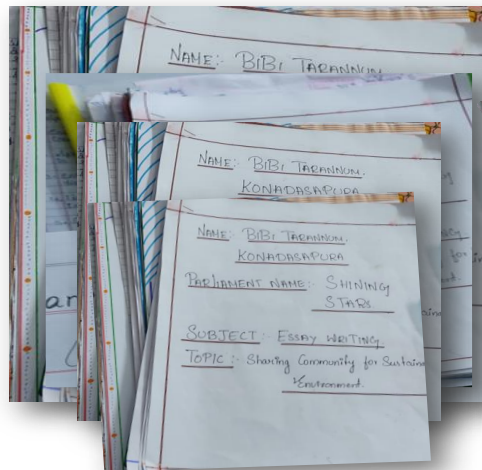 NAME:- BIBI TARANNUM
NAME:- BIBI TARANNUM.
KONADASAPURA
NAME:- BIBI TARANNUM.
KONADASAPURA
PARLIAMENT NAME:- SHINING
STARS.
SUBJECT:- ESSAY WRITING
TOPIC:- Sharing Community for Sustain
Environment.